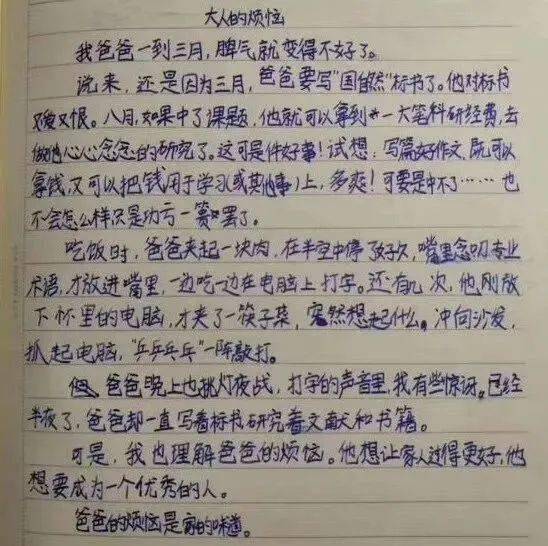 大人的烦恼
我爸爸一到三月,脾气就变得不好了。
说来,还是因为三月,爸爸要写"国自然"标书了。他对标书
又爱又恨。八月,如果中了课题,他就可以拿到一大笔科研经费,去
做他心心念念的研究了。这可是件好事!试想:写篇好作文,既可以
拿钱,又可以把钱用于学习(或其他事)上,多爽!可要是中不了……也
不会怎么样只是功亏一篑罢了。
吃饭时,爸爸夹起一块肉,在半空中停了好久,嘴里念叨专业
术语,才放进嘴里,一边吃一边在电脑上打字。还有几次,他刚放
下怀里的电脑,才夹了一筷子菜,突然想起什么,冲向沙发,
抓起电脑,"乒乒乓乓"一阵敲打。
爸爸晚上也挑灯夜战,打字的声音里,我有些惊讶。已经
半夜了,爸爸却一直写着标书研究着文献和书籍。
可是,我也理解爸爸的烦恼。他想让家人过得更好,他
想要成为一个优秀的人。
爸爸的烦恼是家的味道。